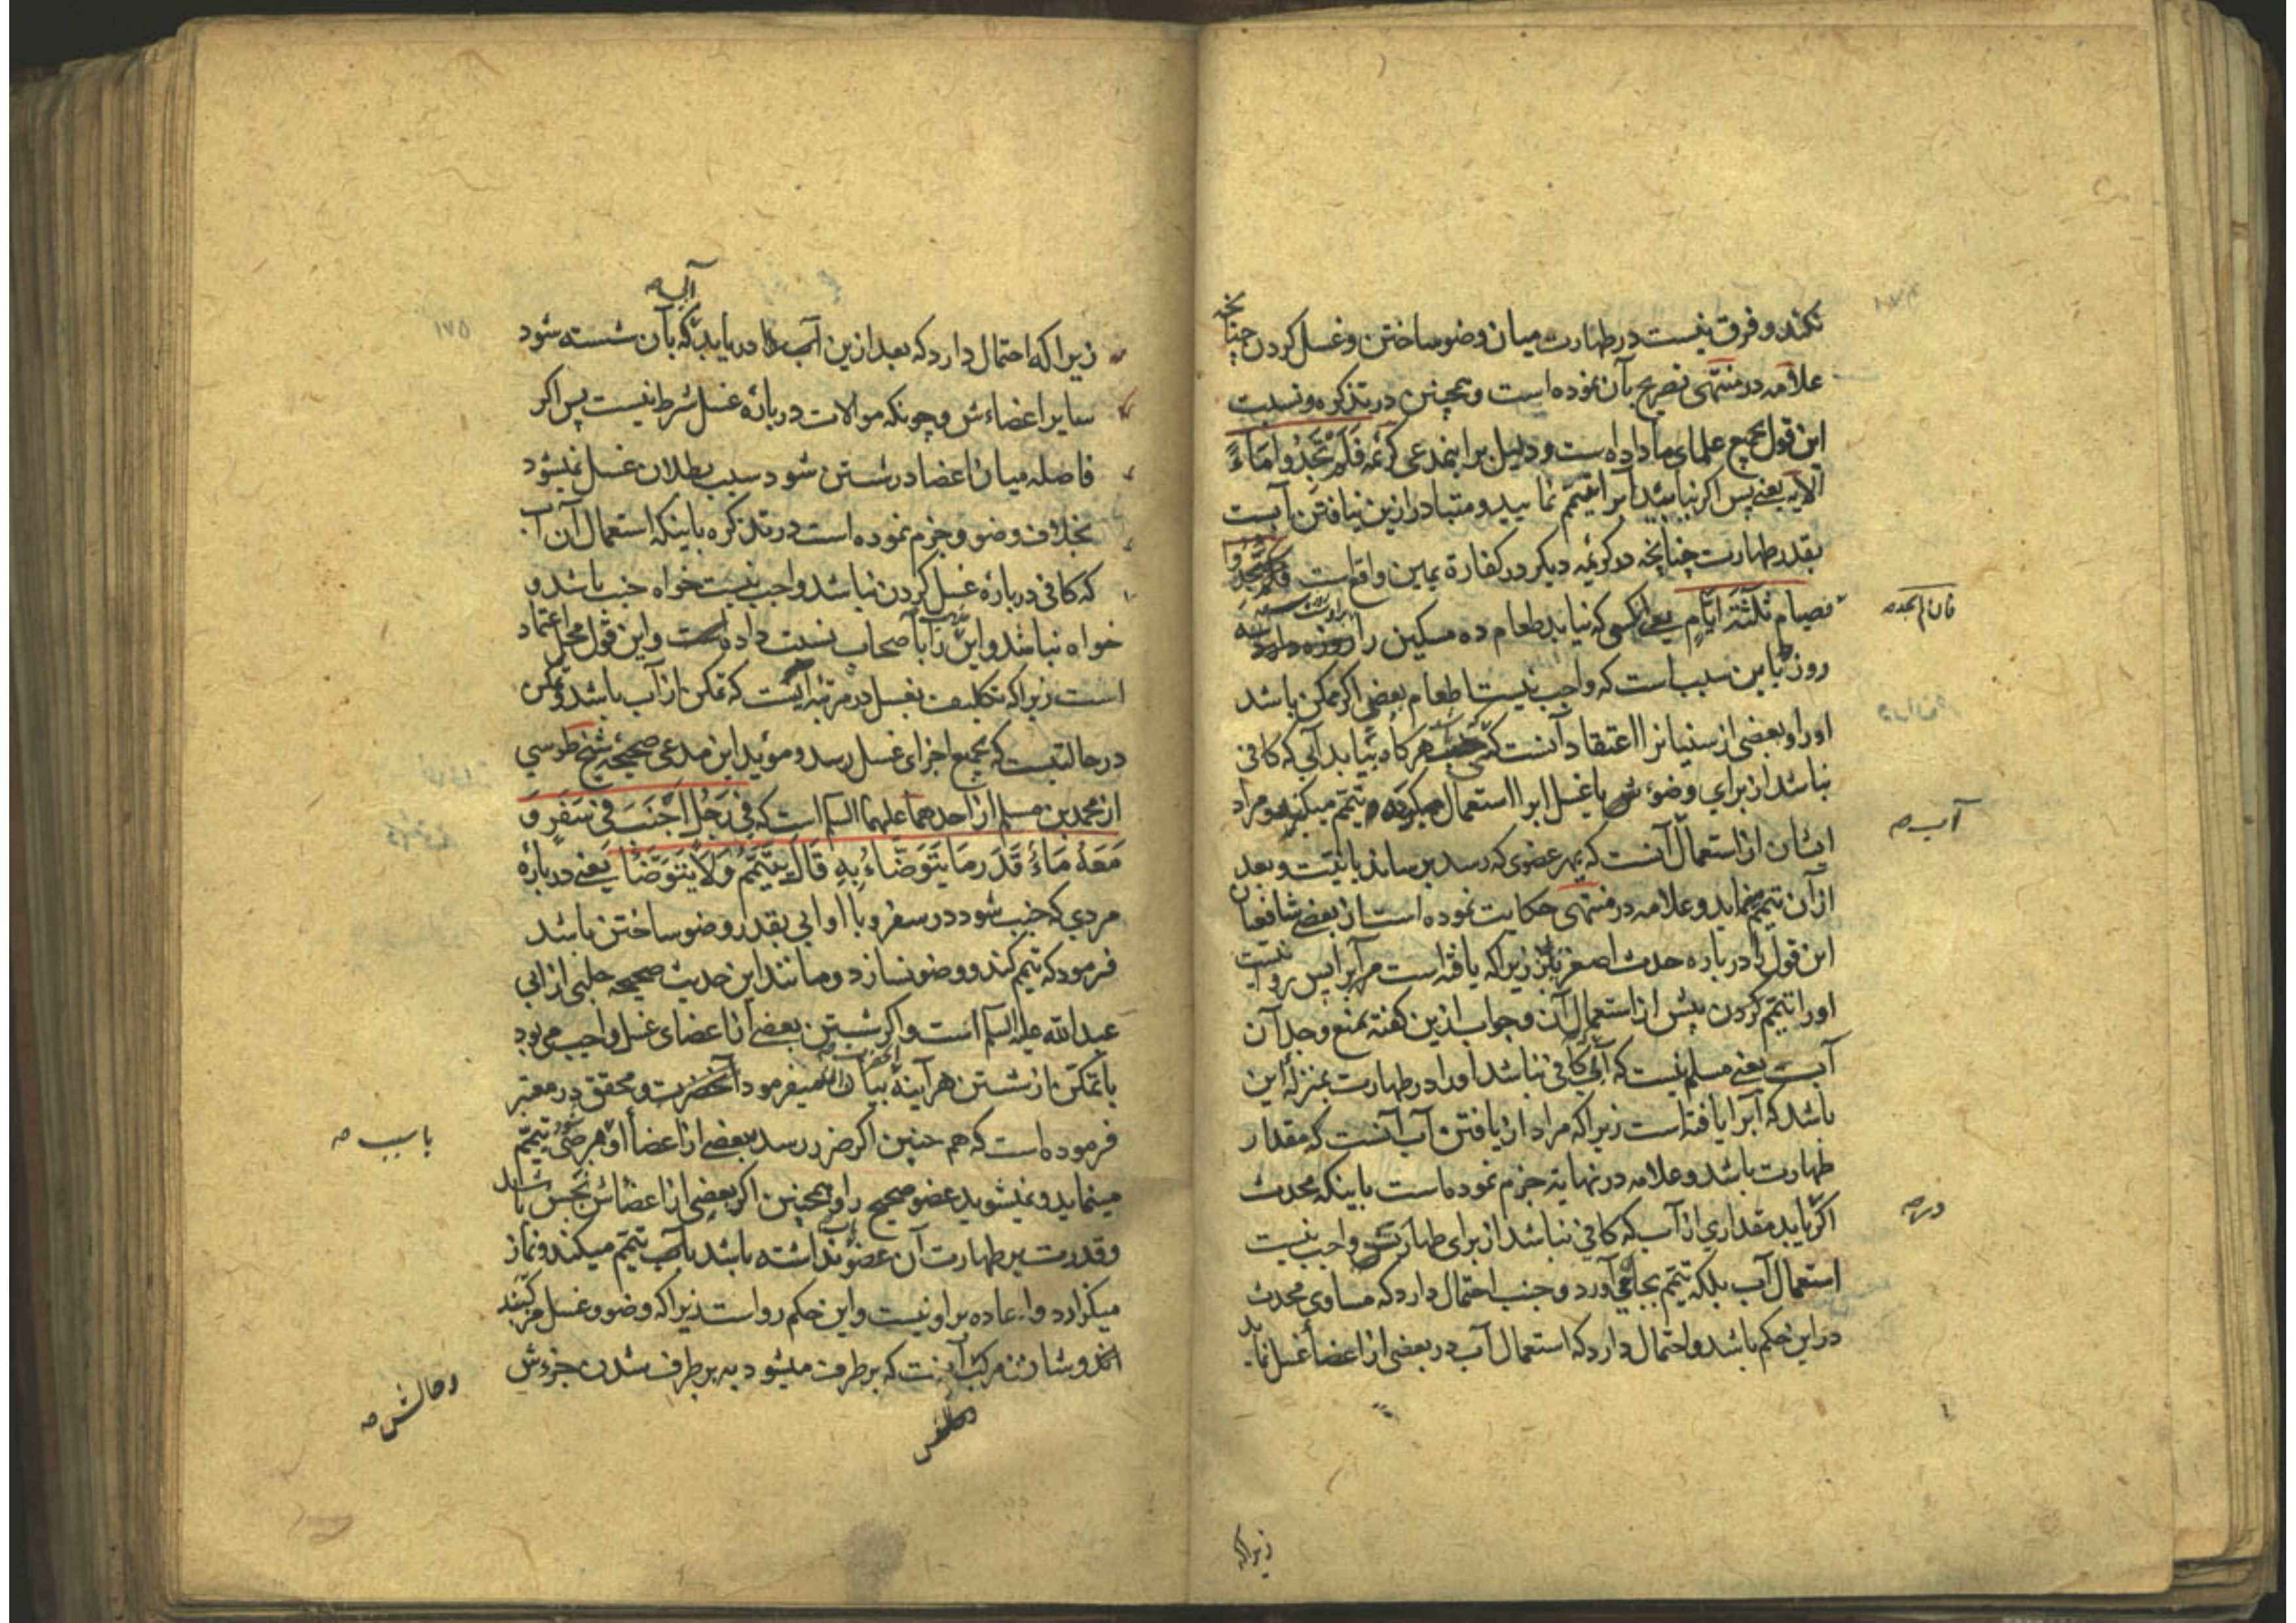 نکند و فرق نیست در طهارت میان وضو ساختن و غسل کردن چنانچه
علامه در منتهی تصریح بآن نموده است و همچنین در تذکره و نسبت
این قول بجمیع علمای ما داده است و دلیل بر اینمدعی کریمه فَلَمْ تَجِدُوا مَاءً
الآیه یعنی پس اگر نیابید آبرا تیمم نمایید و متبادر ازین نیافتن آبست
بقدر طهارت چنانچه در کریمه دیگر در کفارة یمین واقع است
فصیام ثلثة ایّام یعنی کسی که نیابد طعام ده مسکین را
فان لم یجد صه
روز باین سبب است که واجب نیست اطعام بعضی اگر ممکن باشد
او را و بعضی از سنیانرا اعتقاد آنست که هرگاه بیابد آبی که کافی
نباشد از برای وضوءش یا غسل ابرا استعمال میکند و تیمم میکند و مراد
آب صه
ایشان از استعمال آنست که بهر عضوی که رسد برساند بانیّت و بعد
از آن تیمم نماید و علامه در منتهی حکایت نموده است از بعض شافعیان
این قول را در باره حدث اصغر نیز زیرا که یافته است مر آبرا پس روا نیست
او را تیمم کردن پیش از استعمال آن و جواب ازین گفته بمنع وجدان
آب یعنی مسلم نیست که آبی کافی نباشد او را در طهارت بمنزله این
باشد که آبرا یافته است زیرا که مراد از یافتن آب آنست که مقدار
طهارت باشد و علامه در نهایة جزم نموده است باینکه محدث
اگر بیابد مقداری از آب که کافی نباشد از برای طهارتش واجب نیست
استعمال آب بلکه تیمم بجا می آورد و جنب احتمال دارد که مساوی محدث
در این حکم باشد و احتمال دارد که استعمال آب در بعضی از اعضا غسل نماید
زیرا که
آبی صه
زیرا که احتمال دارد که بعد ازین آب را دریابد که بآن شسته شود
سایر اعضاءش و چونکه موالات در بارهٔ غسل شرط نیست پس اگر
فاصله میان اعضا در شستن شود سبب بطلان غسل نمیشود
بخلاف وضو و جزم نموده است در تذکره باینکه استعمال آن آب
که کافی در بارهٔ غسل کردن نباشد واجب نیست خواه جنب باشد و
خواه نباشد و این را بأصحاب نسبت داده است و این قول محل اعتماد
است زیرا که تکلیف بغسل در مرتبه ایست که تمکن از آب باشد و تمکن
در حالتیست که بجمیع اجزای غسل رسد و مؤید این مدعی صحیحهٔ شیخ طوسی
از محمد بن مسلم از احدهما علیهما السلم است که فِی رَجُلٍ اَجْنَبَ فِی سَفَرٍ وَ
مَعَهُ مَاءٌ قَدَرَ مَا یَتَوَضَّاءُ بِهِ قَالَ یَتَیَمَّمُ وَلَا یَتَوَضَّأُ یعنی دربارهٔ
مردی که جنب شود در سفر و با او آبی بقدر وضو ساختن باشد
فرمود که تیمم کند و وضو نسازد و مانند این حدیث صحیحه حلبی از ابی
عبد الله علیه السلم است و اگر شستن بعضی از اعضای غسل واجب می بود
با تمکن از شستن هر آینه بیان میفرمود آنحضرت و محقق در معتبر
فرموده است که هم چنین اگر ضرر رسد ببعضی از اعضأ او تیمم
با سبب صه
مینماید و نمیشوید عضو صحیح را و همچنین اگر بعضی از اعضائش نجس باشد
و قدرت بر طهارت آن عضو نداشته باشد بآب تیمم میکند و نماز
میگزارد و اعاده بر او نیست و این حکم رواست زیرا که وضو و غسل مرکبند
اند و شان مرکب آنست که بر طرف میشود به بر طرف شدن جزءش